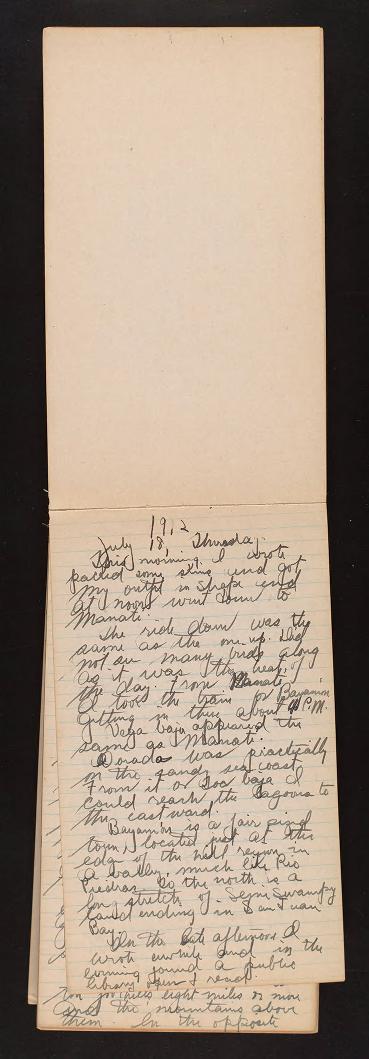 1912
July 18, Thursday.
This morning I wrote
packed some skins and got
my outfit in shape and
at noon went down to
Manati.
The ride down was the
same as the one up. Did
not see many birds along
as it was the heat of
the day. From Manati
I took the train for Bayamon
getting in there about 4 P.M.
Vega baja appeared the
same as Manati.
Dorado was practically
on the sandy sea coast
From it or Toa baja I
could reach the lagoons to
the eastward.
Bayamon is a fair sized
town, located just at the
edge of the hill region in
a valley, much like Rio
Piedras. To the north is a
long stretch of semi swampy
land ending in San Juan
Bay.
In the late afternoon I
wrote awhile and in the
evening found a public
library open & read.
foothills eight miles or more
and the mountains above
them. In the opposite